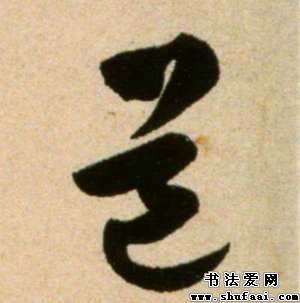 邑
书法爱网
www.shufaai.com